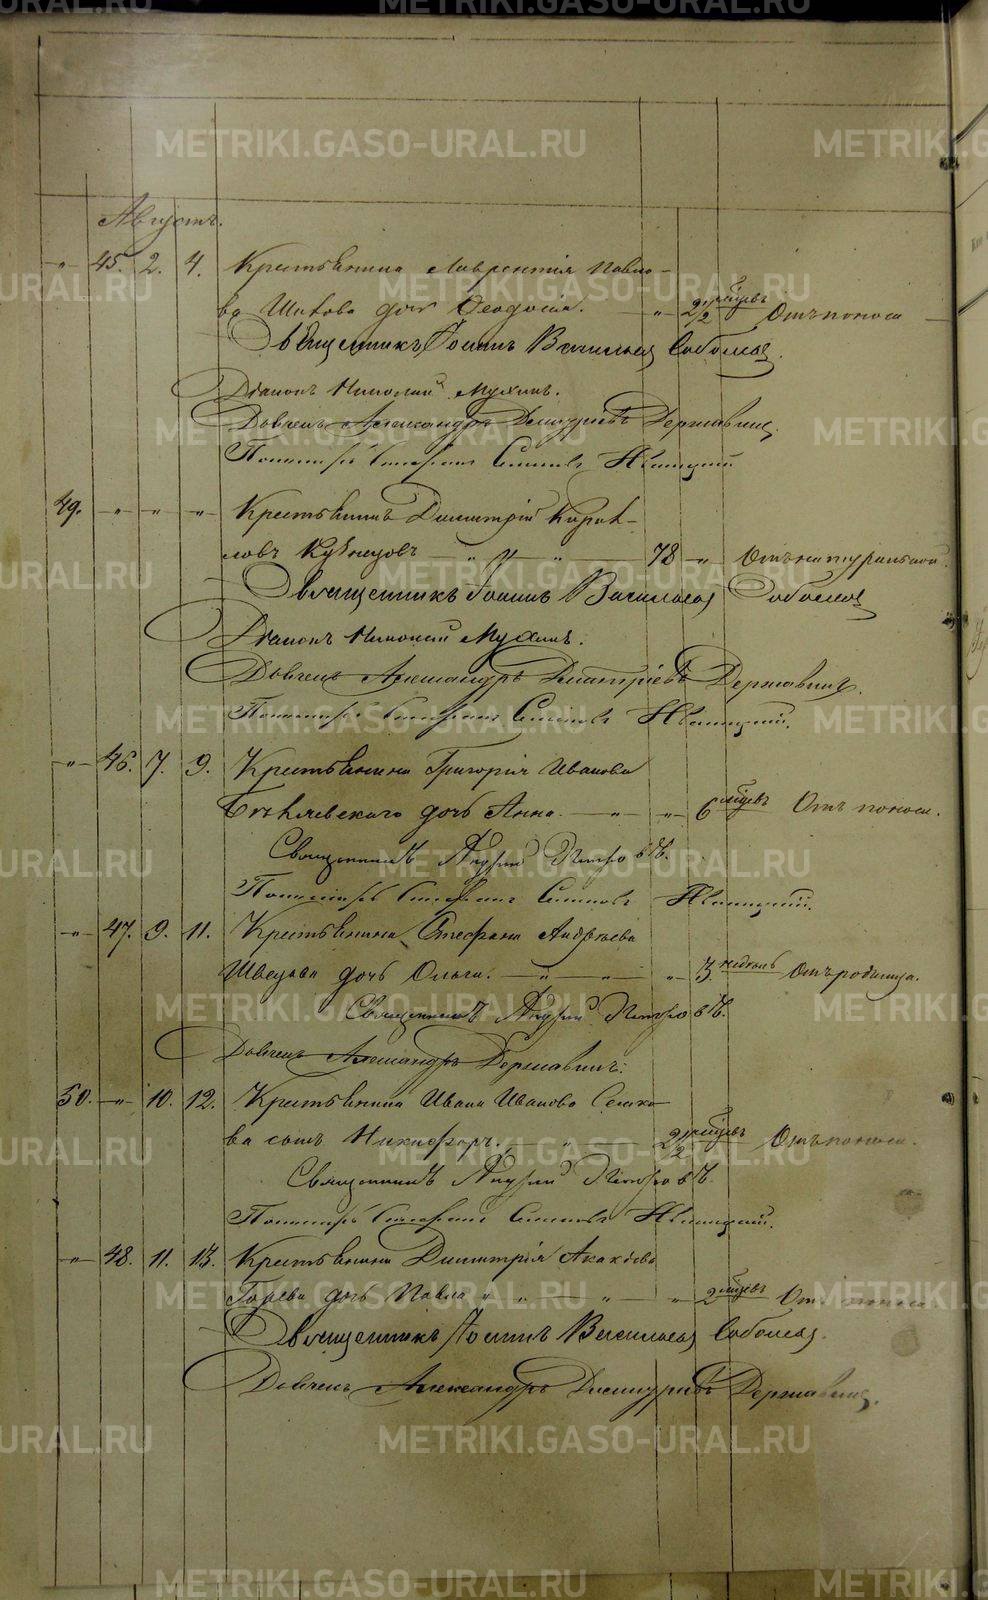 METRIKI.GASO-URAL.RU
Августъ.
" 45. 2. 4. Крестьянина Лаврентія Павло-
ва Шихова дочь Ѳеодосія. " 2 1/2 месяцевъ Отъ поноса
Священникъ Іоаннъ Васильевъ Соболевъ.
Діаконъ Николай Мухинъ.
Дьячекъ Александръ Димитріевъ Державинъ.
Пономарь Стефанъ
49. " " " Крестьянинъ Димитрій Корни-
ловъ Кузнецовъ " " " 78 " Отъ натуральной.
Священникъ Іоаннъ Васильевъ Соболевъ
Діаконъ Николай Мухинъ.
Дьячекъ Александръ Димитріевъ Державинъ.
Пономарь Стефанъ
" 46. 7. 9. Крестьянина Григорія Иванова
дочь Анна. " " 6 месяцевъ Отъ поноса.
Священникъ Андрей Петровъ.
Пономарь Стефанъ
" 47. 9. 11. Крестьянина Стефана Андреева
Швецова дочь Ольга. " " " 3 недель Отъ родимца.
Священникъ Андрей Петровъ.
Дьячекъ Александръ Державинъ.
50. " 10. 12. Крестьянина Ивана Иванова
сынъ Никифоръ. " 2 1/2 месяцевъ Отъ поноса.
Священникъ Андрей Петровъ.
Пономарь Стефанъ
" 48. 11. 13. Крестьянина Димитрія Акакіева
дочь Павла " " " " 2 месяцевъ Отъ поноса.
Священникъ Іоаннъ Васильевъ Соболевъ.
Дьячекъ Александръ Димитріевъ Державинъ.